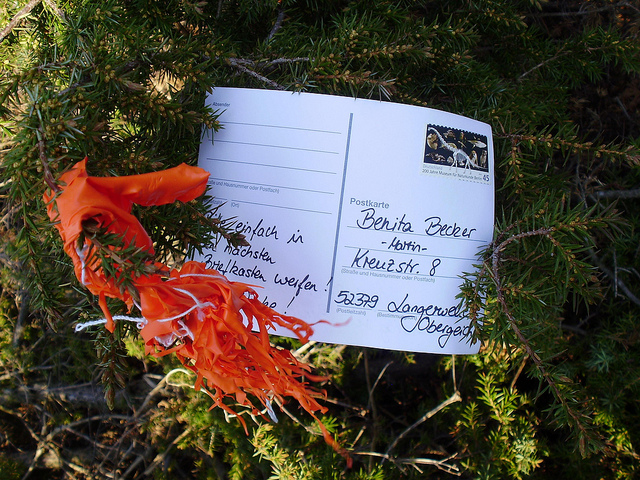 Absender
(Straße und Hausnummer oder Postfach)
(Ort)
einfach in
nächsten
Briefkasten werfen!
200 Jahre Museum für Naturkunde Berlin 45
Postkarte
Benita Becker
- Martin -
Kreuzstr. 8
(Straße und Hausnummer oder Postfach)
52379 Langerwehe
(Postleitzahl)
Obergeich